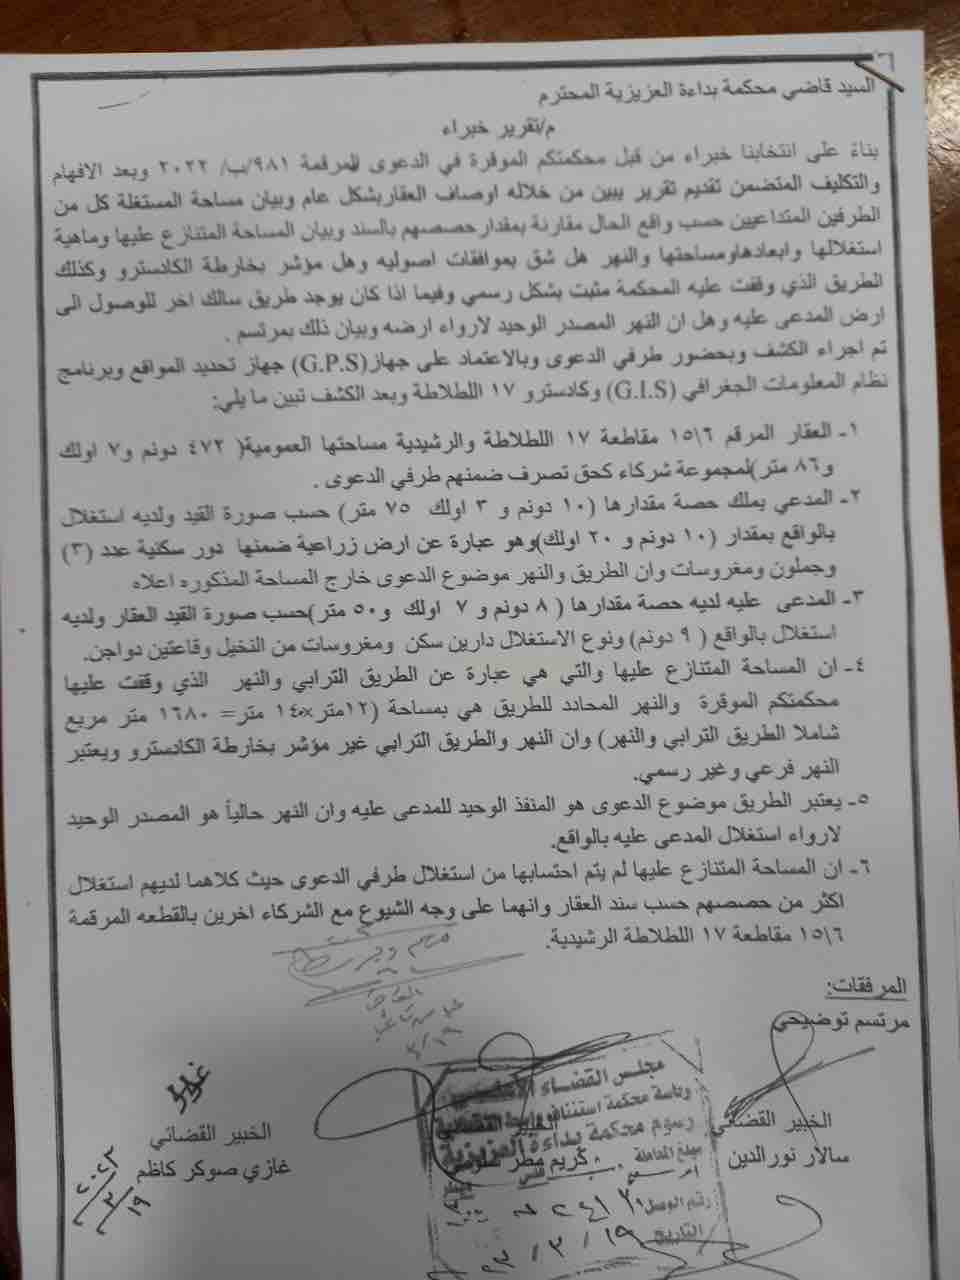 السيد قاضي محكمة بداءة العزيزية المحترم
م/تقرير خبراء
بناءً على انتخابنا خبراء من قبل محكمتكم الموقرة في الدعوى المرقمة ٩٨١/ب/ ٢٠٢٢ وبعد الافهام
والتكليف المتضمن تقديم تقرير يبين من خلاله اوصاف العقاربشكل عام وبيان مساحة المستغلة كل من
الطرفين المتداعيين حسب واقع الحال مقارنة بمقدارحصصهم بالسند وبيان المساحة المتنازع عليها وماهية
استغلالها وابعادهاومساحتها والنهر هل شق بموافقات اصوليه وهل مؤشر بخارطة الكادسترو وكذلك
الطريق الذي وقفت عليه المحكمة مثبت بشكل رسمي وفيما اذا كان يوجد طريق سالك اخر للوصول الى
ارض المدعى عليه وهل ان النهر المصدر الوحيد لارواء ارضه وبيان ذلك بمرتسم .
تم اجراء الكشف وبحضور طرفي الدعوى وبالاعتماد على جهاز(G.P.S) جهاز تحديد المواقع وبرنامج
نظام المعلومات الجغرافي (G.I.S) وكادسترو ١٧ اللطلاطة وبعد الكشف تبين ما يلي:
١- العقار المرقم ١٥\٦ مقاطعة ١٧ اللطلاطة والرشيدية مساحتها العمومية( ٤٧٢ دونم و٧ اولك
و٨٦ متر)لمجموعة شركاء كحق تصرف ضمنهم طرفي الدعوى .
٢- المدعي يملك حصة مقدارها (١٠ دونم و ٣ اولك ٧٥ متر) حسب صورة القيد ولديه استغلال
بالواقع بمقدار (١٠ دونم و ٢٠ اولك)وهو عبارة عن ارض زراعية ضمنها دور سكنية عدد (٣)
وجملون ومغروسات وان الطريق والنهر موضوع الدعوى خارج المساحة المذكوره اعلاه
٣- المدعى عليه لديه حصة مقدارها ( ٨ دونم و ٧ اولك و٥٠ متر)حسب صورة القيد العقار ولديه
استغلال بالواقع ( ٩ دونم) ونوع الاستغلال دارين سكن ومغروسات من النخيل وقاعتين دواجن.
٤- ان المساحة المتنازع عليها والتي هي عبارة عن الطريق الترابي والنهر الذي وقفت عليها
محكمتكم الموقرة والنهر المحادد للطريق هي بمساحة (١٢متر×١٤٠ متر= ١٦٨٠ متر مربع
شاملا الطريق الترابي والنهر) وان النهر والطريق الترابي غير مؤشر بخارطة الكادسترو ويعتبر
النهر فرعي وغير رسمي.
٥- يعتبر الطريق موضوع الدعوى هو المنفذ الوحيد للمدعى عليه وان النهر حالياً هو المصدر الوحيد
لارواء استغلال المدعى عليه بالواقع.
٦- ان المساحة المتنازع عليها لم يتم احتسابها من استغلال طرفي الدعوى حيث كلاهما لديهم استغلال
اكثر من حصصهم حسب سند العقار وانهما على وجه الشيوع مع الشركاء اخرين بالقطعه المرقمة
١٥\٦ مقاطعة ١٧ اللطلاطة الرشيدية.
المرفقات:
مرتسم توضيحي
مجلس القضاء الأعلى
رئاسة محكمة استئناف واسط
رسوم محكمة بداءة العزيزية
مبلغ المعاملة
رقم الوصل
التاريخ ١٩ / ٢ / ٢٣
الخبير القضائي
سالار نورالدين
كريم مطر
الخبير القضائي
غازي صوكر كاظم
١٩/٢/٢٠٢٣